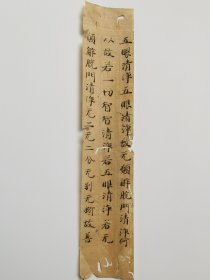 五眼清淨五眼清淨故无願解脫門清淨何
以故若一切智智清淨若五眼清淨若无
願解脫門清淨无二无二分无別无斷故善